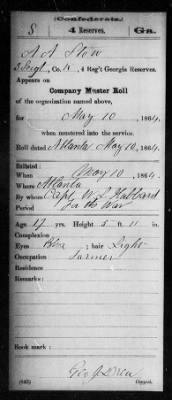 Confederate.
S 4 Reserves. Ga.
A. A. Stow
3 Sergt, Co. K, 4 Reg't Georgia Reserves.
Appears on
Company Muster Roll
of the organization named above,
for May 10, 1864,
when mustered into the service.
Roll dated Atlanta May 10, 1864.
Enlisted:
When May 10, 1864.
Where Atlanta
By whom Capt. W. L. Hubbard
Period for the War
Age 17 yrs. Height 5 ft. 11 in.
Complexion
Eyes Blue; hair Light
Occupation Farmer
Residence
Remarks:
Geo J Drew
Copyist.